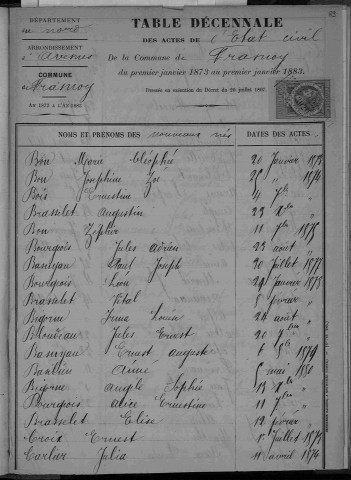 DÉPARTEMENT
du nord
ARRONDISSEMENT
d'Avesnes
COMMUNE
de Frasnoy
AN 1873 à L'AN 1883
TABLE DÉCENNALE
DES ACTES DE l'État civil
De la Commune de Frasnoy
du premier janvier 1873 au premier janvier 1883.
Dressée en exécution du Décret du 20 juillet 1807
NOMS ET PRÉNOMS DES nouveaux nés DATES DES ACTES
Bon Marie Cléophée 20 Janvier 1873
Bon Joséphine Zoé 25 " 1874
Bois Ernestine 4 7bre "
Brasselet Augustin 23 Xbre "
Bon Zéphir 11 7bre 1875
Bourgeois Jules Adrien 23 août "
Basuyau Paul Joseph 30 Juillet 1877
Bourgeois Léon 24 Janvier 1878
Brasselet Vital 5 février "
Bigorne Irma Louise 24 août "
Jules Ernest 20 "
Basuyau Ernest auguste 1879
Aimé 5 mai 1880
Bigorne Angèle Sophie 13 Xbre "
Bourgeois Alice Ernestine 11 7bre
Brasselet Elise 12 février
Croix Ernest 1er Juillet 1873
Carlier Julia 11 avril 1874